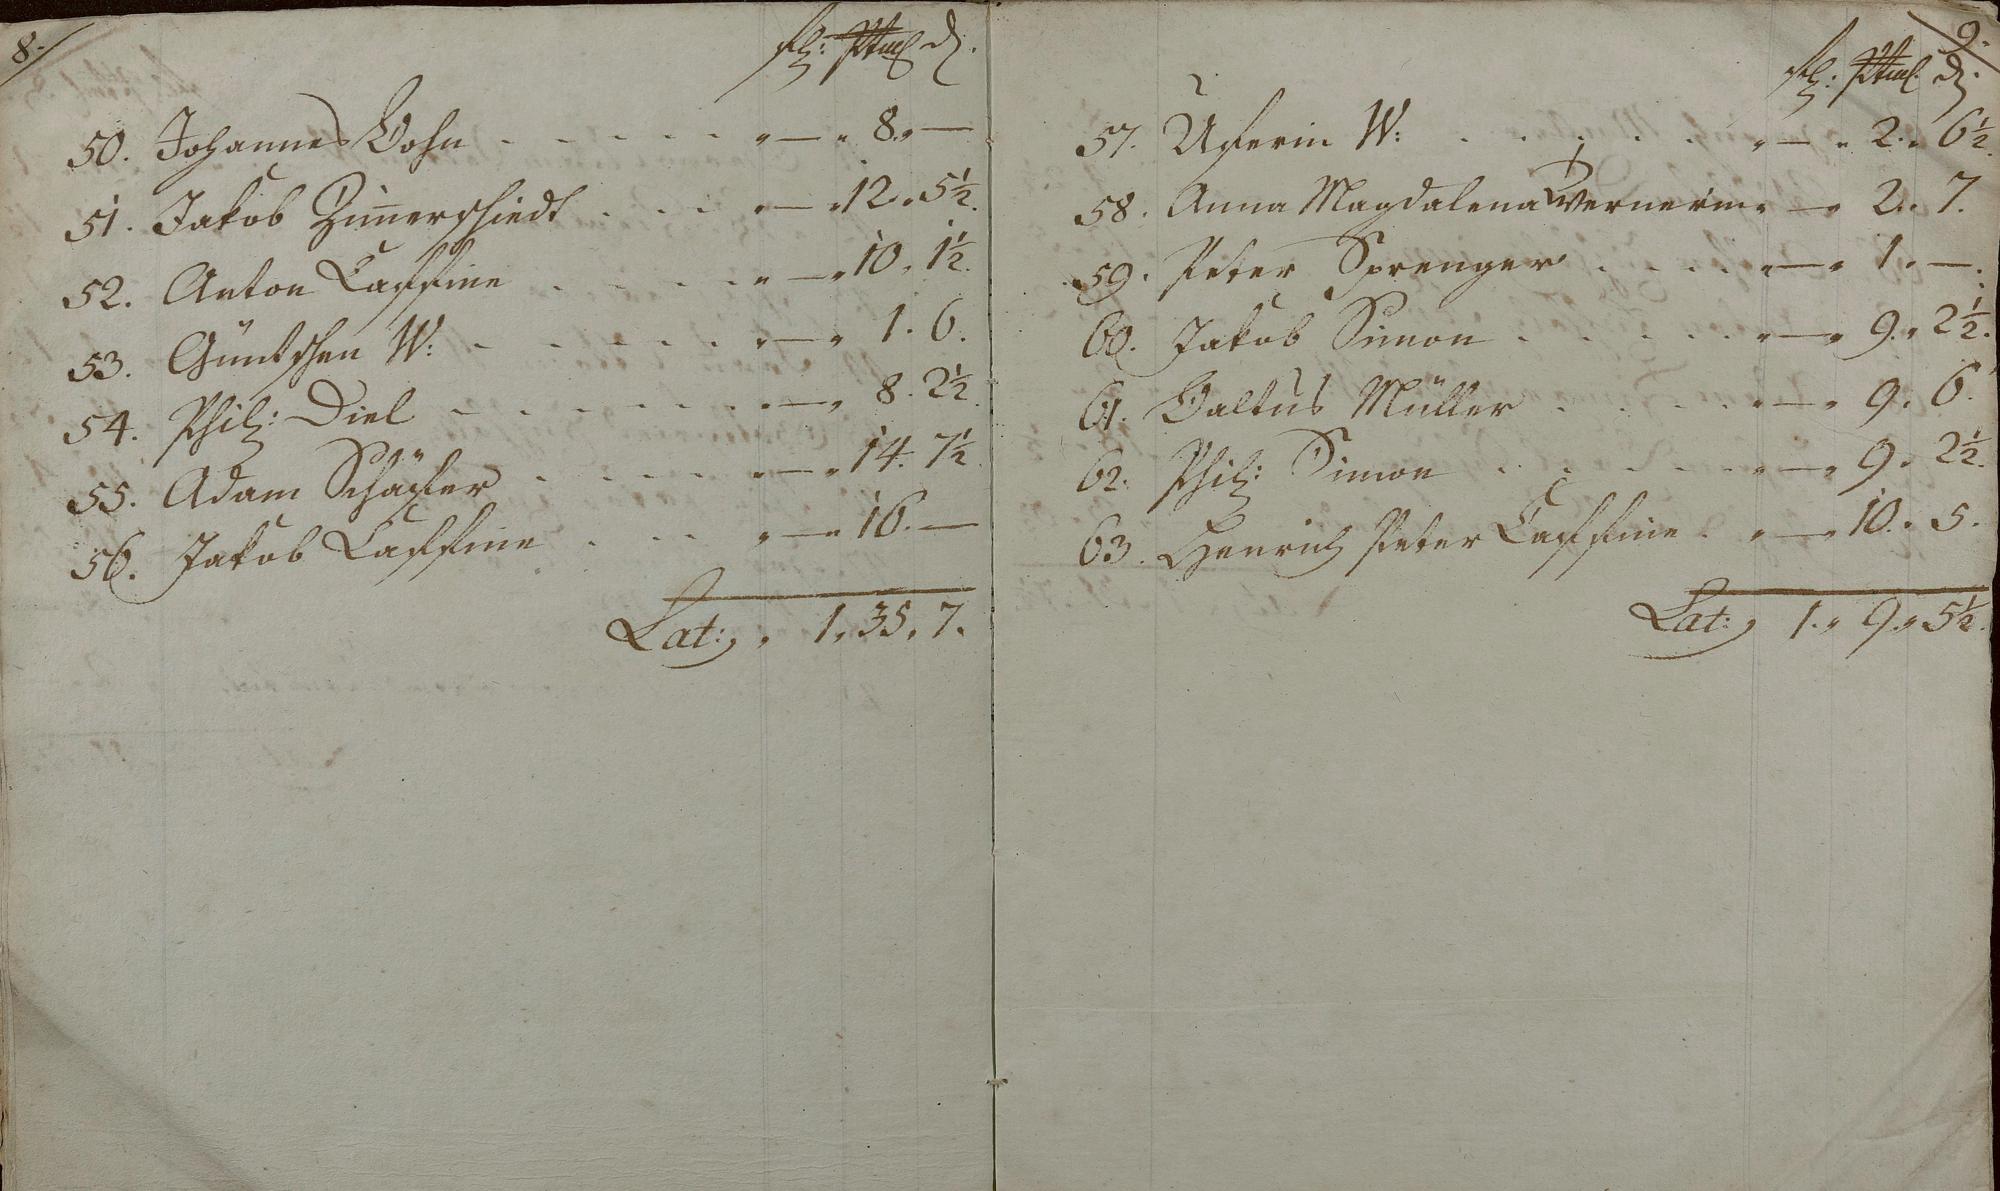 8.
fl: ₰.
50. Johannes Bohn . . . . . " — " 8. " —
51. Jakob Zim̄erschiedt . . . " — " 12 " 5½.
52. Anton Cassine . . . . " — " 10. 1½.
53. Güntschen W: . . . . . " — " 1. 6.
54. Phil: Diel . . . . . . " — " 8. 2½.
55. Adam Schäffer . . . . " — " 14. 7½.
56. Jakob Cassine . . . " — " 16. —
Lat: . 1. 35. 7.
9.
fl: ₰.
57. Userin W: . . . . . " — " 2. " 6½.
58. Anna Magdalena Wernerin " — " 2. " 7.
59. Peter Sprenger . . . . " — " 1. " —.
60. Jakob Simon . . . . . " — " 9. " 2½.
61. Baltus Müller . . . . " — " 9. 6.
62. Phil: Simon . . . . . " — " 9. 2½.
63. Henrich Peter Cassine . " — " 10. " 5.
Lat: 1. " 9. " 5½.